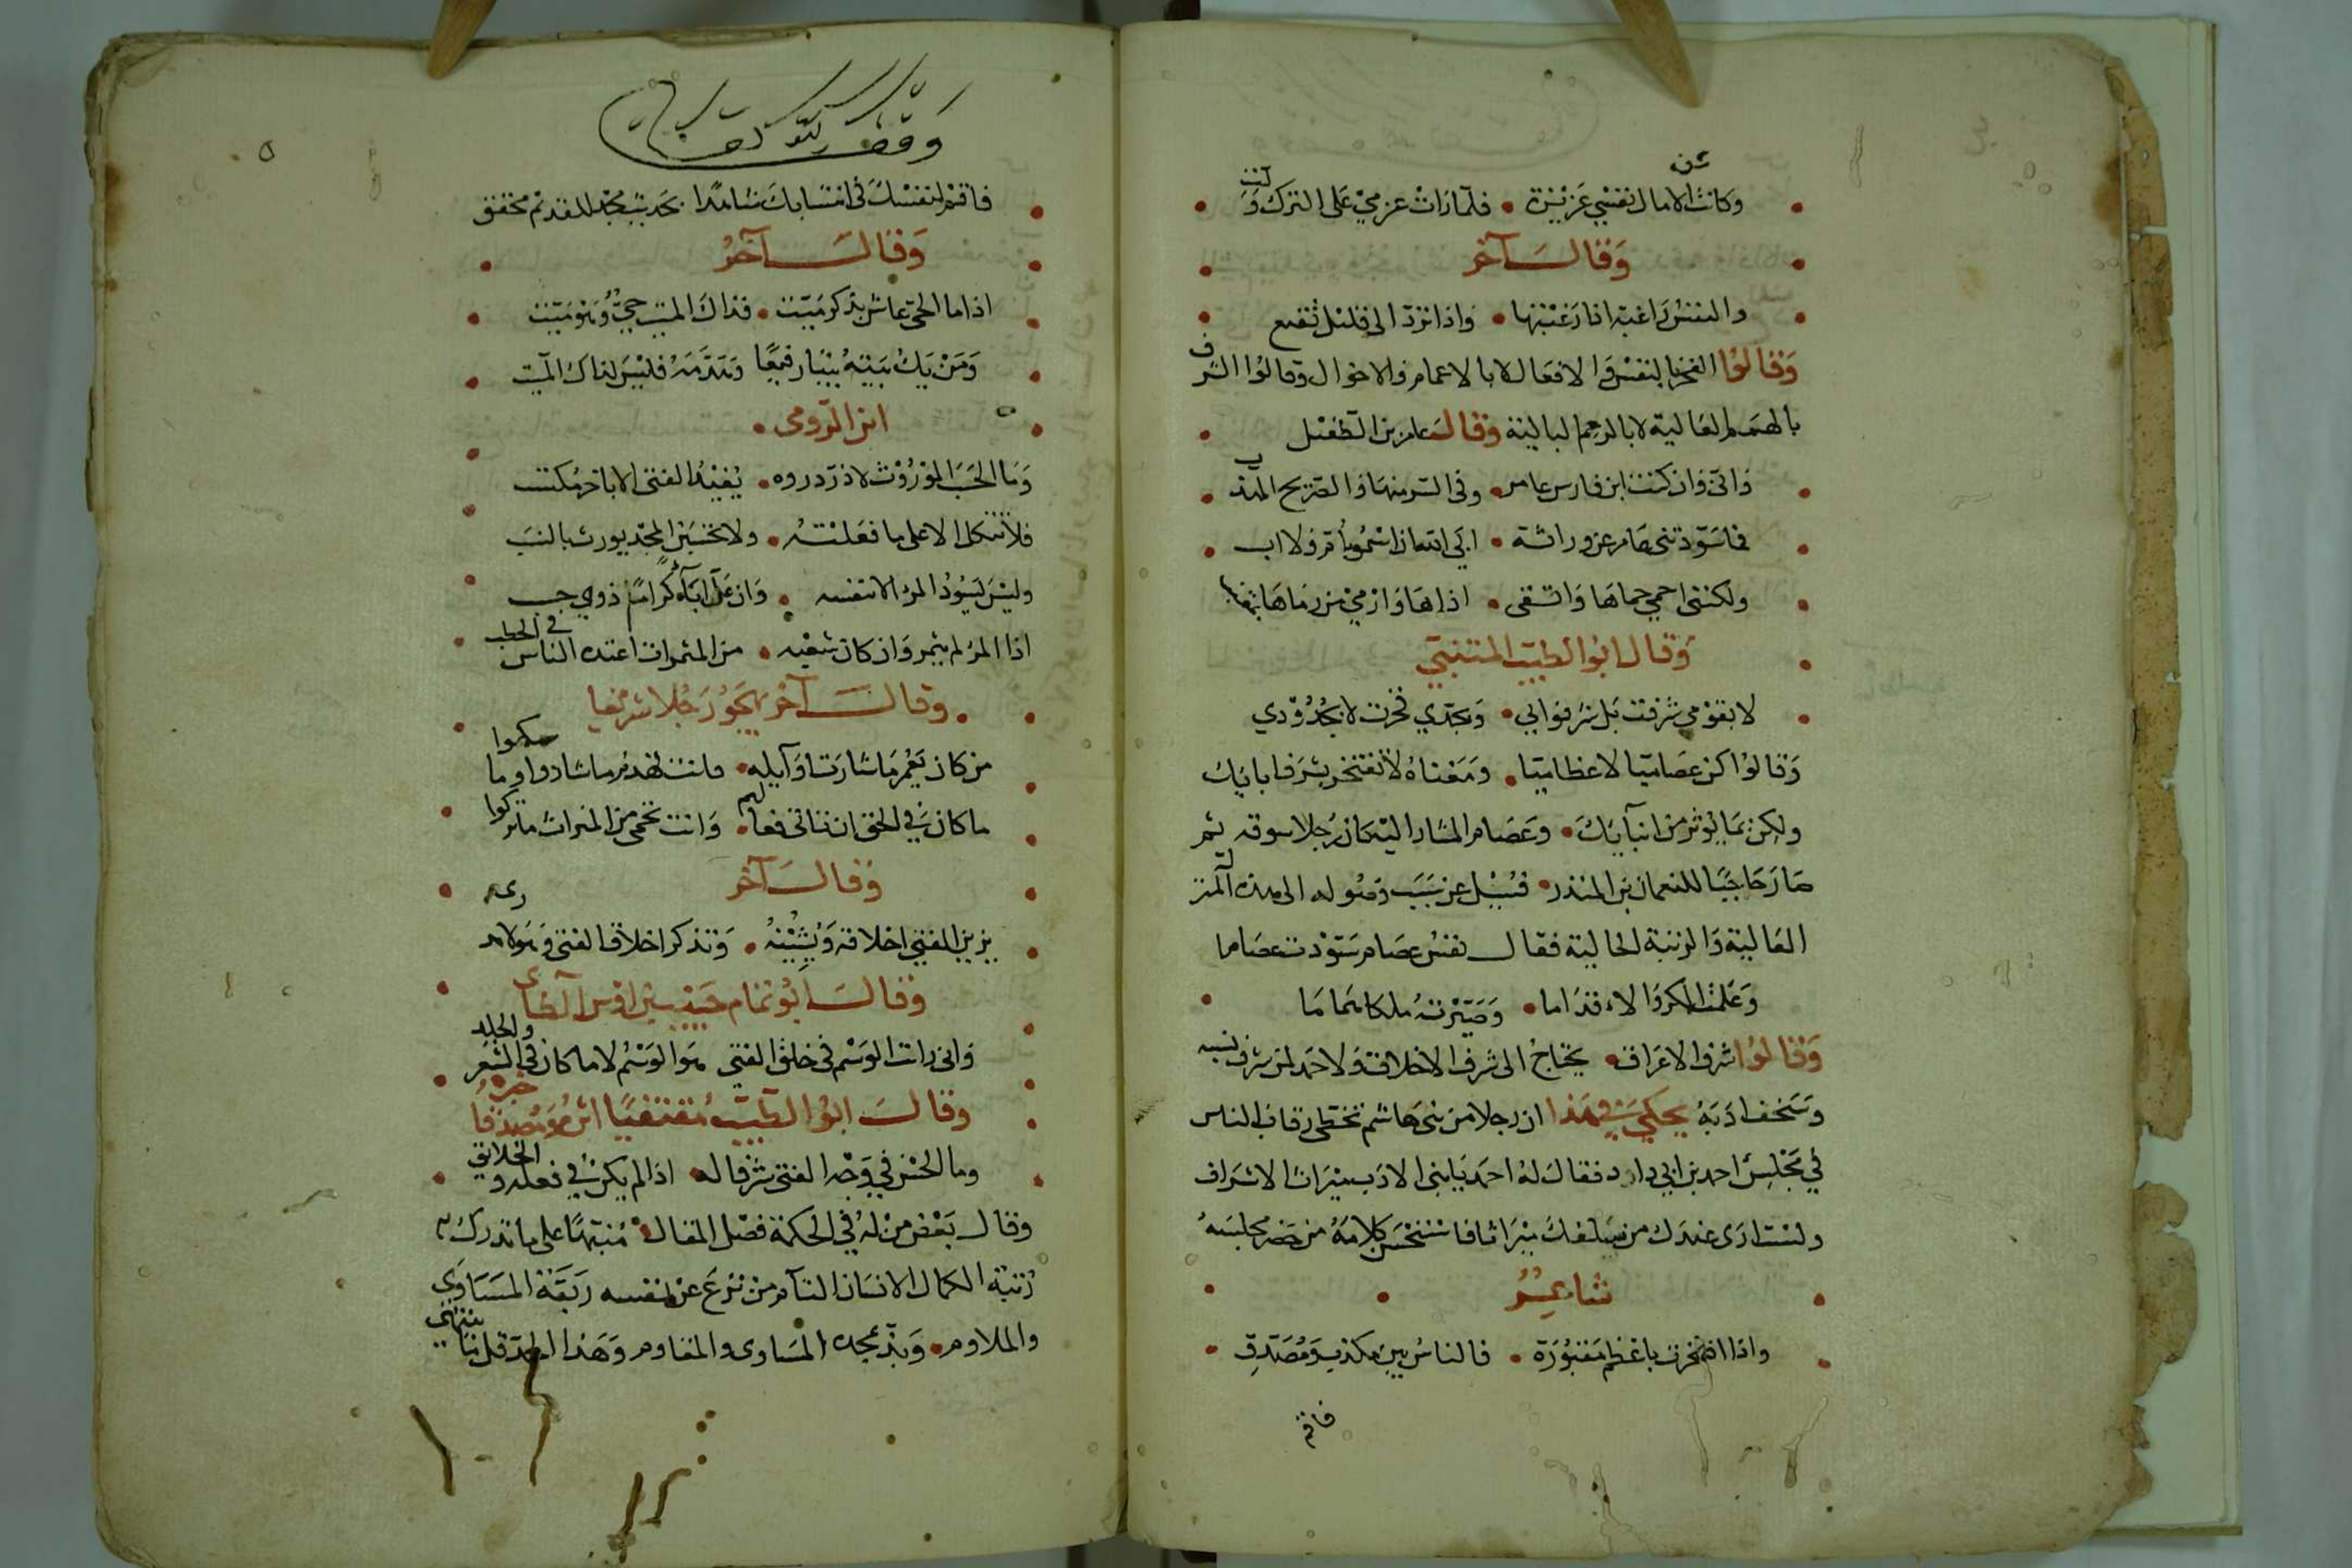 وكانت الامال نفسي عزيزة • فلما رات عزمي على الترك ولت
وقال آخر
والنفس راغبة اذا رغبتها • واذا ترد الى قليل تقنع
وقالوا الفخر بالنفس والافعال لا بالاعمام والاخوال وقالوا الشرف
بالهمم العالية لا بالرمم البالية وقال عامر بن الطفيل
واني وان كنت ابن فارس عامر • وفي السر منها والصريح المهذب
فما سودتني عامر عن وراثة • ابى الله ان اسمو بأم ولا اب
ولكنني احمي حماها واتقي • اذاها وارمي من رماها
وقال ابو الطيب المتنبي
لا بقومي شرفت بل شرفوا بي • وبجدي فخرت لا بجدودي
وقالوا كن عصاميا لا عظاميا • ومعناه لا تفتخر بشرف ابائك
ولكن بما يؤثر من انبآيك • وعصام المشار اليه كان رجلا سوقه ثم
صار حاجبا للنعمان بن المنذر • فسيل عن سبب وصوله الى هذه المنزلة
العالية والرتبة الحالية فقال نفس عصام سودت عصاما
وعلمته الكر والاقداما • وصيرته ملكا هماما
وقالوا شرف الاعراق • يحتاج الى شرف الاخلاق ولا حمد لمن شرف نسبه
وسخف ادبه يحكى في هذا ان رجلا من بني هاشم تخطى رقاب الناس
في مجلس احمد بن ابي داود فقال له احمد يا بني الادب ميراث الاشراف
ولست ارى عندك من سلفك ميراثا فاستحسن كلامه من حضر مجلسه
شاعر
واذا افتخرت باعظم مقبورة • فالناس بين مكذب ومصدق
فاقم
وقف لله تعالى
٥
فاقم لنفسك في انتسابك شاهدا بحديث مجد للقديم محقق
وقال آخر
اذا ما الحي عاش بذكر ميت • فذاك الميت حي وهو ميت
ومن يك بيته بيتا رفيعا وهدمه فليس لذاك الميت
ابن الرومي •
وما الحسب الموروث لا در دره • يفيد الفتى الا باخر مكتسب
فلا تتكل الا على ما فعلته • ولا تحسبن المجد يورث بالنسب
وليس يسود المرء الا بنفسه • وان عد آباء كراما ذوي حسب
اذا المرء لم يثمر وان كان شعبه • من المثمرات اعتده الناس في الحطب
• وقال آخر يهجو رجلا شريفا
من كان يعمر ما شادت اوايله • فانت تهدم ما شادوا وما سمكوا
ما كان في الحق ان تاتي فعالهم • وانت تحوي من الميراث ما تركوا
وقال آخر
يزين الفتى اخلاقه ويشينه • وتذكر اخلاق الفتى وهو لا يدري
وقال ابو تمام حبيب بن اوس الطاى
واني رات الوسم في خلق الفتى هو الوسم لا ما كان في الشعر والجلد
وقال ابو الطيب مقتفيا اثره ومصدقا خبره
وما الحسن في وجه الفتى شرفا له • اذا لم يكن في فعله والخلايق
وقال بعض من له في الحكمة فصل المقال • منبها على ما تدرك به
رتبة الكمال الانسان التآم من نزع عن نفسه ربقة المساوي
والملاوم • وبذ بمجده المساوى والمقاوم وهذا الحد قل ما ينتهي